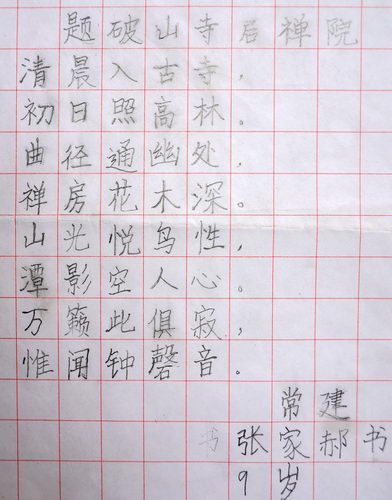 题破山寺后禅院
清晨入古寺，
初日照高林。
曲径通幽处，
禅房花木深。
山光悦鸟性，
潭影空人心。
万籁此俱寂，
惟闻钟磬音。
常建
书张家郝书
9岁